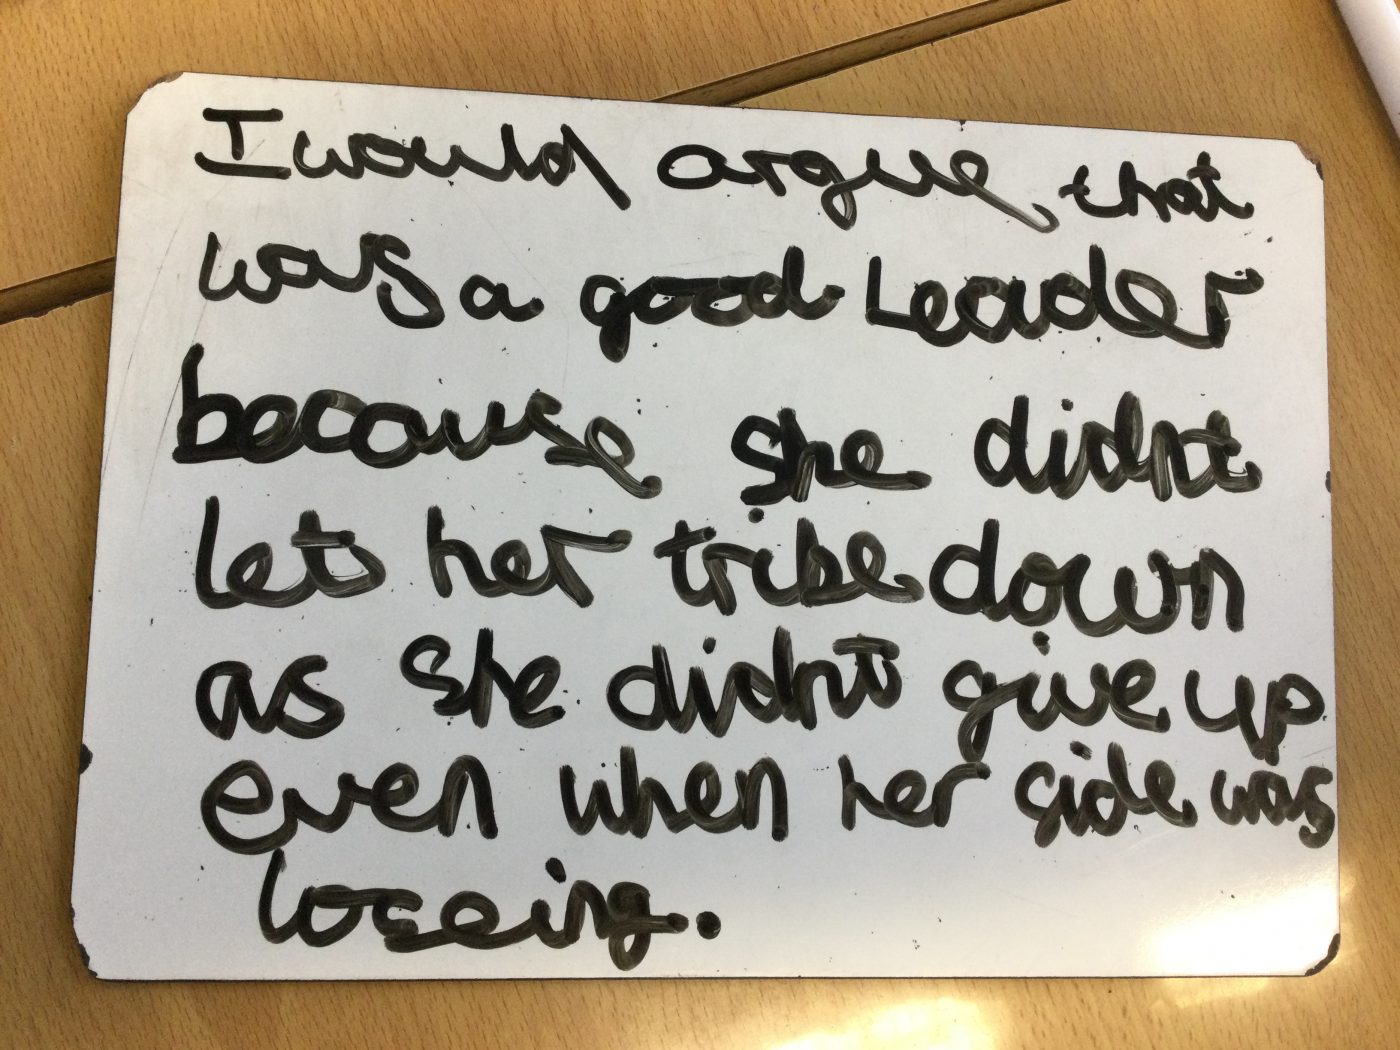 I would argue, that
was a good Leader
because she didnt
let her tribe down
as she didnt give up
even when her side was
loseing.